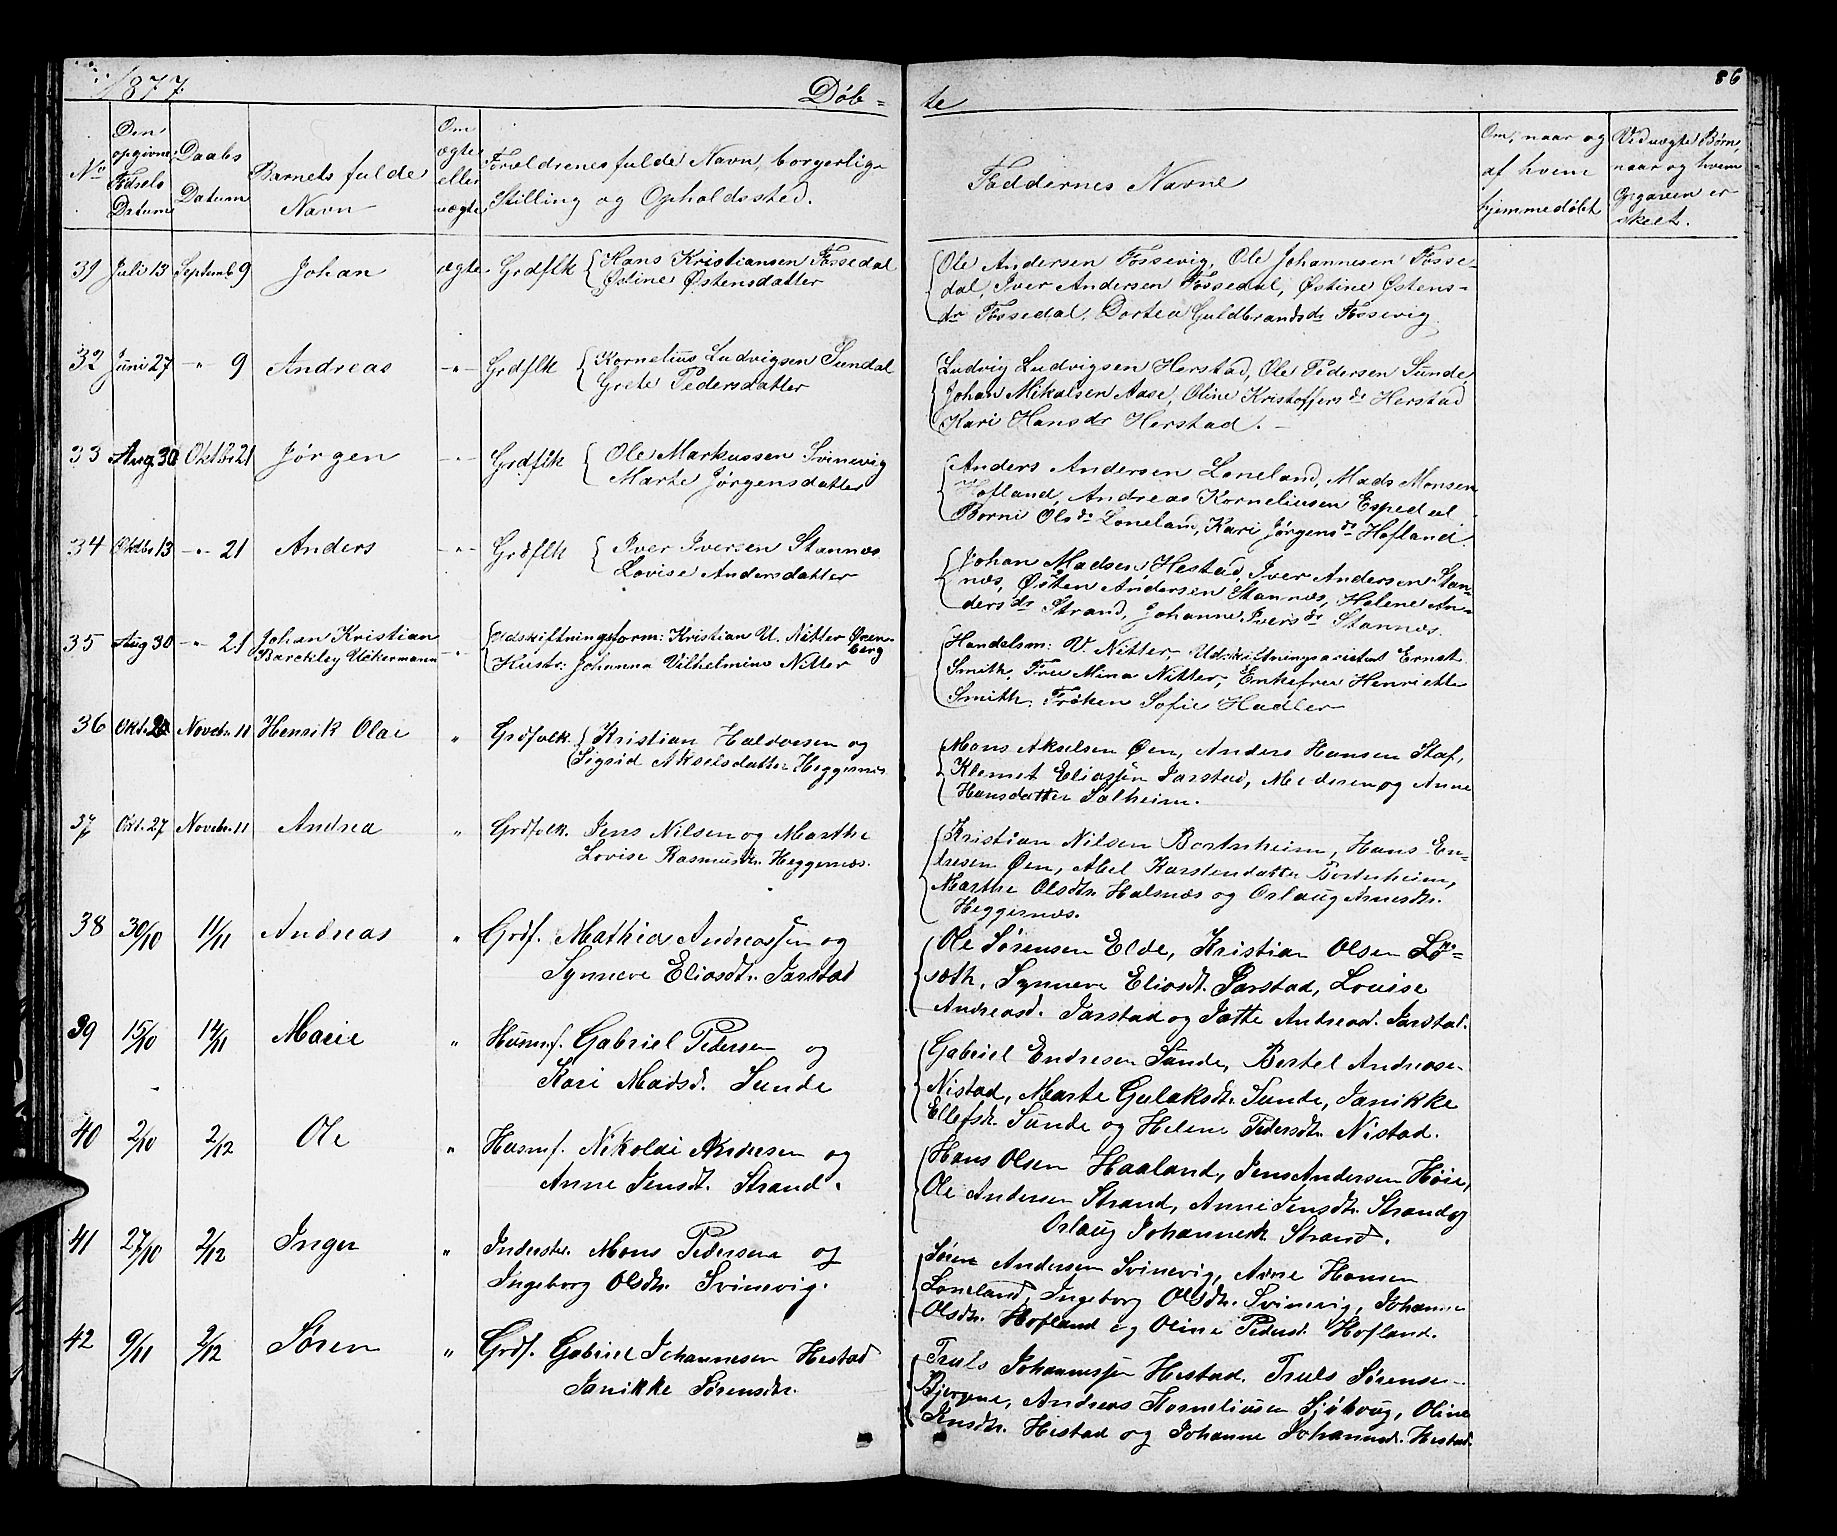 1877
Døb-
te
86
No
Den
opgivne
Fødsels
Datum
Daabs
Datum
Barnets fulde
Navn
Om
ægte
eller
uægte
Forældrenes fulde Navn, borgerlige
Stilling og Opholdssted.
Faddernes Navne
Om, naar og
af hvem
hjemmedøbt
Ved uægte Børn
naar og hvem
Opgaven er
skeet.
31 Juli 13 Septemb 9 Johan ægte Grdflk Hans Kristiansen Fossedal
Østine Østensdatter
Ole Andersen Fossevig, Ole Johannesen Fosse-
dal, Iver Andersen Fossedal, Østine Østens-
dr Fossedal, Dortea Guldbrandsdr Fossevig
32 Juni 27 -"- 9 Andreas -"- Grdflk Kornelius Ludvigsen Sundal
Grete Pedersdatter
Ludvig Ludvigsen Herstad, Ole Pedersen Sunde,
Johan Mikalsen Aase, Oline Kristoffersdr Herstad
Kari Hansdr Herstad. -
33 Aug 30 Oktbr 21 Jørgen -"- Grdflk Ole Markussen Svinevig
Marte Jørgensdatter
Anders Andersen Loneland, Mads Monsen
Hofland, Andreas Korneliusen Espedal
Borni Olsdr Lonelan, Kari Jørgensdr Hofland.
34 Oktbr 13 -"- 21 Anders -"- Grdflk Iver Iversen Stannæs
Lovise Andersdatter
Johan Madsen Hestad, Iver Andersen Stan-
næs, Østen Andersen Stannæs, Helene An-
dersdr Strand, Johanne Iversdr Stannæs.
35 Aug 30 -"- 21 Johan Kristian
Barckley Uckermann -"- Udskiftningsform: Kristian U. Nitter Øren-
berg
Kustr: Johanna Vilhelmine Nitter
Handelsm: V Nitter, Udskiftningsasistent Ernst
Smith, Frue Mina Nitter, Enkefrue Henriette
Smith, Frøken Sofie Hadler
36 Okt. Novebr. 11 Henrik Olai " Grdfolk. Kristian Haldorsen og
Sigrid Akselsdatter Heggernæs
Mons Akselsen Øen, Anders Hansen Staf,
Klemet Eliassen Jarstad, og Anne
Hansdatter Solheim.
37 Okt. 27 Novebr. 11 Andrea " Grdfolk. Jens Nilsen og Marthe
Lovise Rasmusdr. Heggernæs.
Kristian Nilsen Bortnheim, Hans En-
dresen Øen, Abel Karstendatter Bortnheim,
Marthe Olsdtr. Halsnæs og Orlaug Arnesdtr.
Heggernæs.
38 30/10 11/11 Andreas " Grdf. Mathias Andreassen og
Synneve Eliasdt. Jarstad
Ole Sørensen Elde, Kristian Olsen Lø-
sæth, Synneve Eliasdt. Jarstad, Louise
Andreasd. Jarstad og Jætte Andreasd. Jarstad.
39 15/10 14/11 Marie " Husmf. Gabriel Pedersen og
Kari Madsd. Sunde
Gabriel Endresen Sunde, Bertel Andreasen
Nistad, Marte Gulaksdtr. Sunde, Janikke
Ellefsdr. Sunde og Helene Pedersdtr. Nistad.
40 2/10 2/12 Ole " Husmf. Nikolai Andersen og
Anne Jensdt. Strand.
Hans Olsen Haaland, Jens Andersen Høie,
Ole Andersen Strand, Anne Jensdtr. Strand og
Orlaug Johannesdt. Strand.
41 27/10 2/12 Inger " Inderstr. Mons Pedersen og
Ingeborg Olsdtr. Svinevig.
Søren Andersen Svinevig, Arne Hansen
Loneland, Ingeborg Olsdtr. Svinevig, Johanne
Olsdtr. Hofland og Oline Pedersd. Hofland.
42 9/11 2/12 Søren " Grdf. Gabriel Johannesen Hestad
Janikke Sørensdtr.
Truls Johannessen Hestad, Truls Sørensen
Bjergene, Andreas Korneliusen Sjøhoug, Oline
Knsdtr. Hestad og Johanne Johannesd. Hestad.